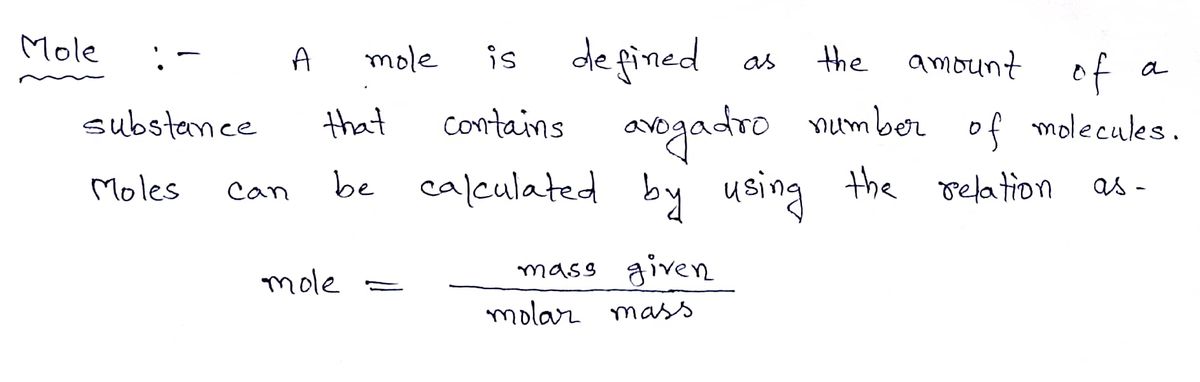 Mole :- A mole is defined as the amount of a
substance that contains avogadro number of molecules.
Moles can be calculated by using the relation as -
mole = mass given
molar mass